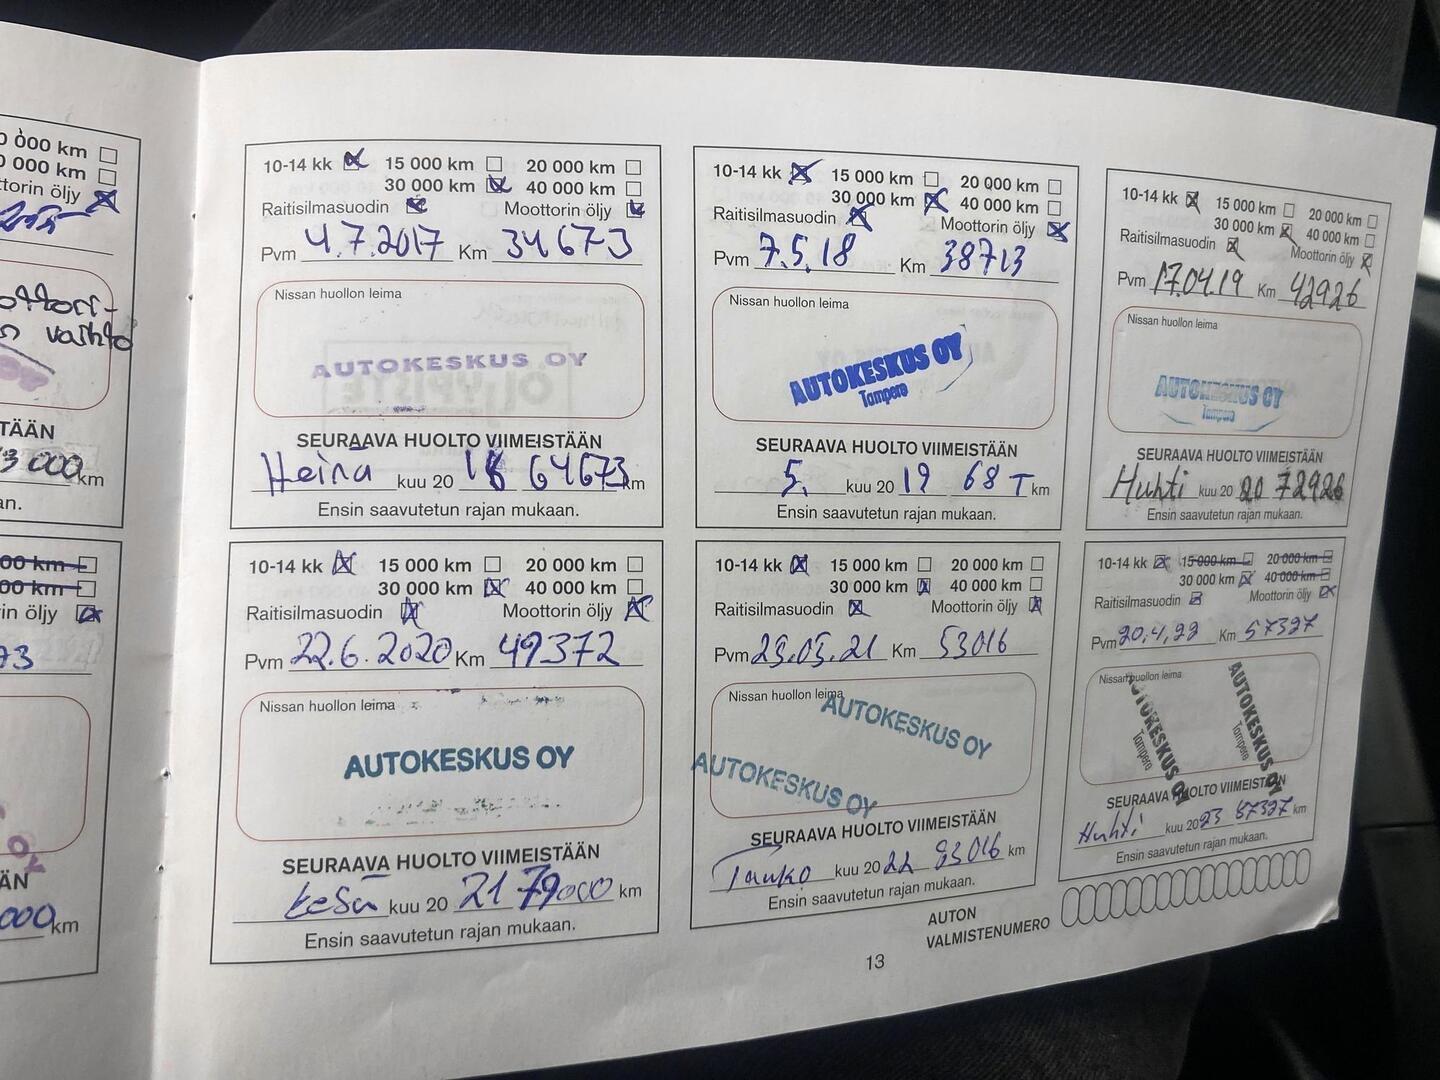 000 km
000 km
ttorin öljy
ottori-
vaihto
TÄÄN
3 000 km
an.
00 km
00 km
in öljy
73
ÄN
000 km
10-14 kk 15 000 km 20 000 km
30 000 km 40 000 km
Raitisilmasuodin Moottorin öljy
Pvm 4.7.2017 Km 34673
Nissan huollon leima
AUTOKESKUS OY
SEURAAVA HUOLTO VIIMEISTÄÄN
Heinä kuu 20 18 64673 km
Ensin saavutetun rajan mukaan.
10-14 kk 15 000 km 20 000 km
30 000 km 40 000 km
Raitisilmasuodin Moottorin öljy
Pvm 7.5.18 Km 38713
Nissan huollon leima
AUTOKESKUS OY
Tampere
SEURAAVA HUOLTO VIIMEISTÄÄN
5. kuu 20 19 68 T km
Ensin saavutetun rajan mukaan.
10-14 kk 15 000 km 20 000 km
30 000 km 40 000 km
Raitisilmasuodin Moottorin öljy
Pvm 17.04.19 Km 42926
Nissan huollon leima
AUTOKESKUS OY
Tampere
SEURAAVA HUOLTO VIIMEISTÄÄN
Huhti kuu 20 20 72926
Ensin saavutetun rajan mukaan.
10-14 kk 15 000 km 20 000 km
30 000 km 40 000 km
Raitisilmasuodin Moottorin öljy
Pvm 22.6.2020 Km 49372
Nissan huollon leima
AUTOKESKUS OY
SEURAAVA HUOLTO VIIMEISTÄÄN
kesä kuu 20 21 79000 km
Ensin saavutetun rajan mukaan.
10-14 kk 15 000 km 20 000 km
30 000 km 40 000 km
Raitisilmasuodin Moottorin öljy
Pvm 23.03.21 Km 53016
Nissan huollon leima
AUTOKESKUS OY
AUTOKESKUS OY
SEURAAVA HUOLTO VIIMEISTÄÄN
Touko kuu 20 22 83016 km
Ensin saavutetun rajan mukaan.
10-14 kk 15 000 km 20 000 km
30 000 km 40 000 km
Raitisilmasuodin Moottorin öljy
Pvm 20.4.22 Km 57327
Nissan huollon leima
AUTOKESKUS OY
Tampere
AUTOKESKUS OY
Tampere
SEURAAVA HUOLTO VIIMEISTÄÄN
Huhti kuu 20 23 87327 km
Ensin saavutetun rajan mukaan.
AUTON
VALMISTENUMERO
13